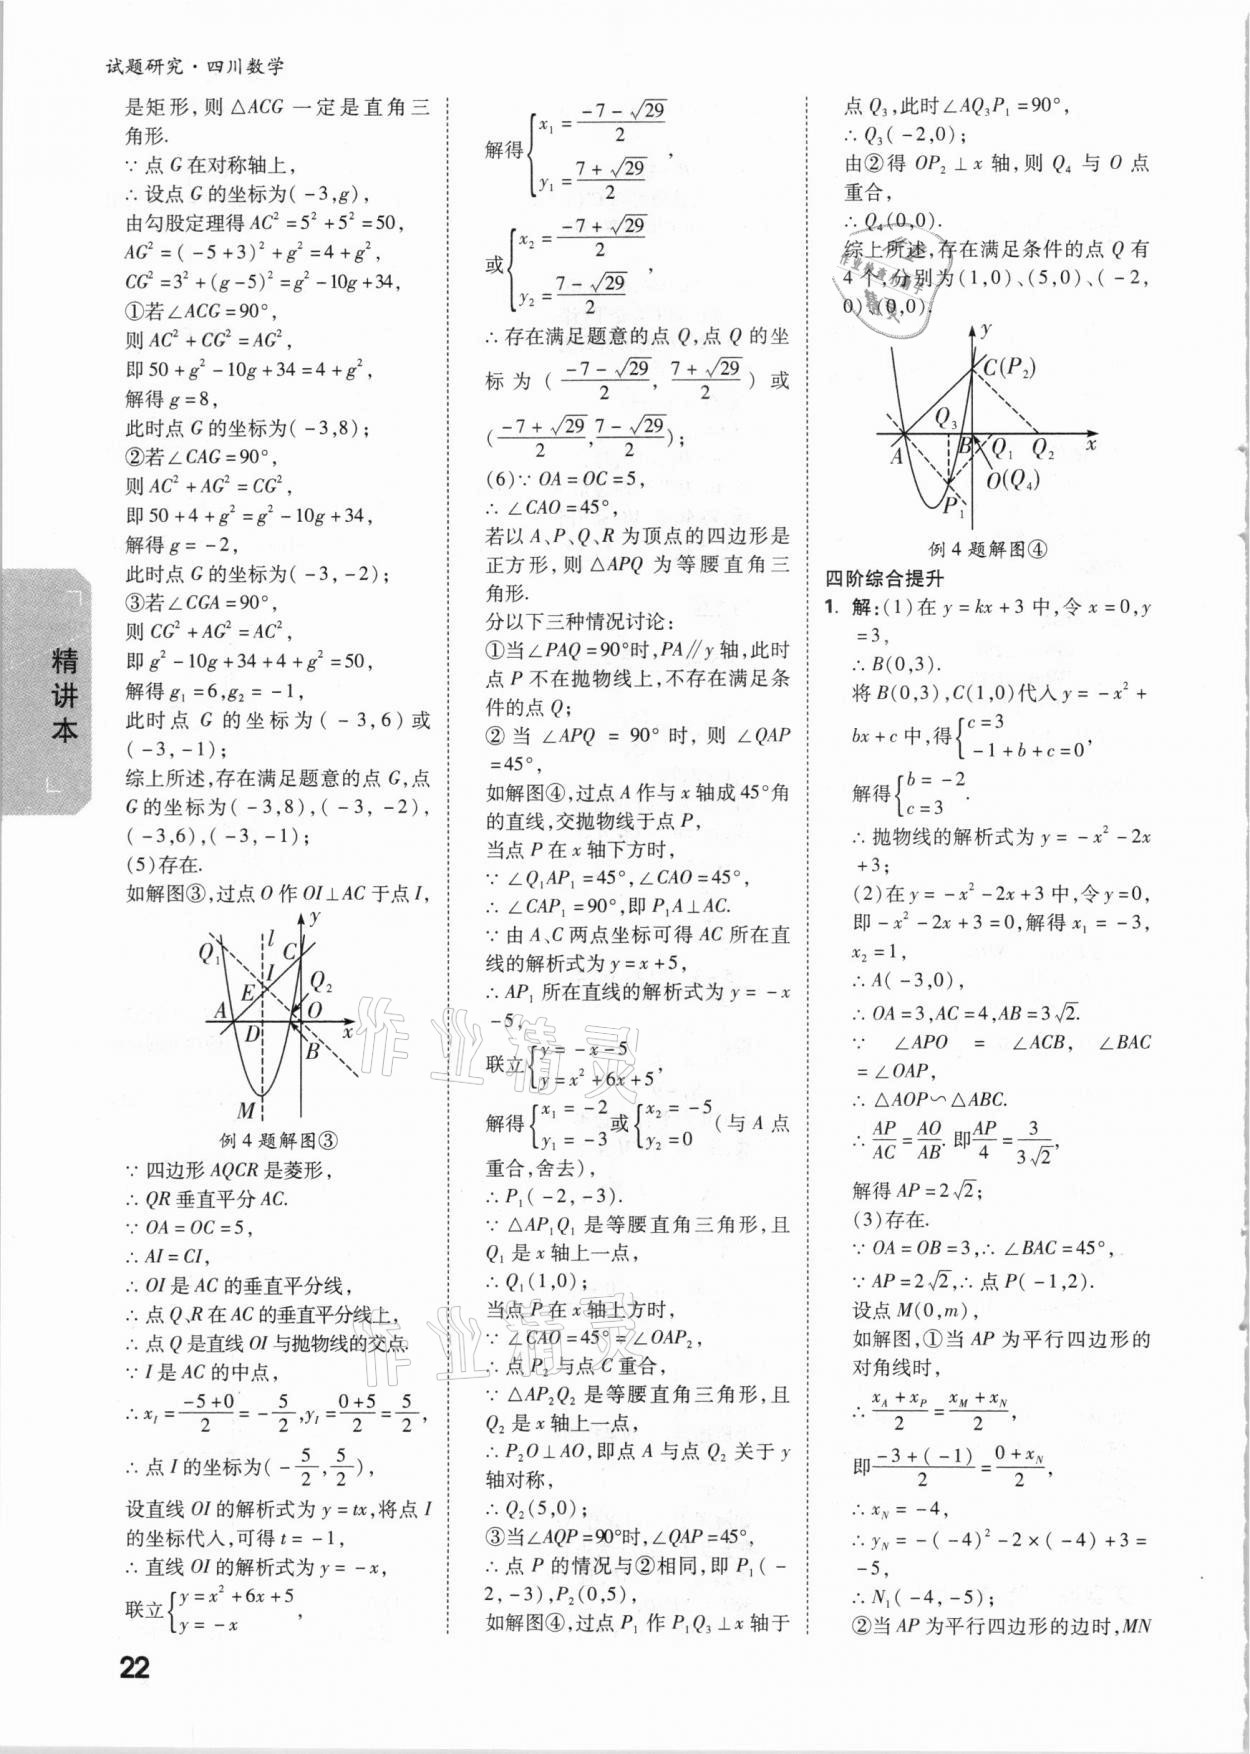 试题研究·四川数学
是矩形,则△ACG 一定是直角三
角形.
∵点 G 在对称轴上,
∴设点 G 的坐标为(-3,g),
由勾股定理得 AC²=5²+5²=50,
AG²=(-5+3)²+g²=4+g²,
CG²=3²+(g-5)²=g²-10g+34,
①若∠ACG=90°,
则 AC²+CG²=AG²,
即 50+g²-10g+34=4+g²,
解得 g=8,
此时点 G 的坐标为(-3,8);
②若∠CAG=90°,
则 AC²+AG²=CG²,
即 50+4+g²=g²-10g+34,
解得 g=-2,
此时点 G 的坐标为(-3,-2);
③若∠CGA=90°,
则 CG²+AG²=AC²,
即 g²-10g+34+4+g²=50,
解得 g₁=6,g₂=-1,
此时点 G 的坐标为(-3,6)或
(-3,-1);
综上所述,存在满足题意的点 G,点
G 的坐标为(-3,8),(-3,-2),
(-3,6),(-3,-1);
(5)存在.
如解图③,过点 O 作 OI⊥AC 于点 I,
y
l
Q₁
C
I
E
Q₂
A
O
D
x
B
M
例 4 题解图③
∵四边形 AQCR 是菱形,
∴QR 垂直平分 AC.
∵OA=OC=5,
∴AI=CI,
∴OI 是 AC 的垂直平分线,
∴点 Q、R 在 AC 的垂直平分线上,
∴点 Q 是直线 OI 与抛物线的交点.
∵I 是 AC 的中点,
∴x_I=(-5+0)/2=-5/2,y_I=(0+5)/2=5/2,
∴点 I 的坐标为(-5/2,5/2),
设直线 OI 的解析式为 y=tx,将点 I
的坐标代入,可得 t=-1,
∴直线 OI 的解析式为 y=-x,
联立{y=x²+6x+5
y=-x,
解得{x₁=(-7-√29)/2
y₁=(7+√29)/2,
或{x₂=(-7+√29)/2
y₂=(7-√29)/2,
∴存在满足题意的点 Q,点 Q 的坐
标为((-7-√29)/2,(7+√29)/2)或
((-7+√29)/2,(7-√29)/2);
(6)∵OA=OC=5,
∴∠CAO=45°,
若以 A、P、Q、R 为顶点的四边形是
正方形,则△APQ 为等腰直角三
角形.
分以下三种情况讨论:
①当∠PAQ=90°时,PA∥y 轴,此时
点 P 不在抛物线上,不存在满足条
件的点 Q;
②当∠APQ=90°时,则∠QAP
=45°,
如解图④,过点 A 作与 x 轴成 45°角
的直线,交抛物线于点 P,
当点 P 在 x 轴下方时,
∵∠Q₁AP₁=45°,∠CAO=45°,
∴∠CAP₁=90°,即 P₁A⊥AC.
∵由 A、C 两点坐标可得 AC 所在直
线的解析式为 y=x+5,
∴AP₁ 所在直线的解析式为 y=-x
-5,
联立{y=-x-5
y=x²+6x+5,
解得{x₁=-2
y₁=-3或{x₂=-5
y₂=0(与 A 点
重合,舍去),
∴P₁(-2,-3).
∵△AP₁Q₁ 是等腰直角三角形,且
Q₁ 是 x 轴上一点,
∴Q₁(1,0);
当点 P 在 x 轴上方时,
∵∠CAO=45°=∠OAP₂,
∴点 P₂ 与点 C 重合,
∵△AP₂Q₂ 是等腰直角三角形,且
Q₂ 是 x 轴上一点,
∴P₂O⊥AO,即点 A 与点 Q₂ 关于 y
轴对称,
∴Q₂(5,0);
③当∠AQP=90°时,∠QAP=45°,
∴点 P 的情况与②相同,即 P₁(-
2,-3),P₂(0,5),
如解图④,过点 P₁ 作 P₁Q₃⊥x 轴于
点 Q₃,此时∠AQ₃P₁=90°,
∴Q₃(-2,0);
由②得 OP₂⊥x 轴,则 Q₄ 与 O 点
重合,
∴Q₄(0,0).
综上所述,存在满足条件的点 Q 有
4 个,分别为(1,0)、(5,0)、(-2,
0)、(0,0).
y
C(P₂)
Q₃
A
B
Q₁
Q₂
x
O(Q₄)
P₁
例 4 题解图④
四阶综合提升
1. 解:(1)在 y=kx+3 中,令 x=0,y
=3,
∴B(0,3).
将 B(0,3),C(1,0)代入 y=-x²+
bx+c 中,得{c=3
-1+b+c=0,
解得{b=-2
c=3.
∴抛物线的解析式为 y=-x²-2x
+3;
(2)在 y=-x²-2x+3 中,令 y=0,
即-x²-2x+3=0,解得 x₁=-3,
x₂=1,
∴A(-3,0),
∴OA=3,AC=4,AB=3√2.
∵∠APO=∠ACB,∠BAC
=∠OAP,
∴△AOP∽△ABC.
∴AP/AC=AO/AB.即AP/4=3/(3√2),
解得 AP=2√2;
(3)存在.
∵OA=OB=3,∴∠BAC=45°,
∵AP=2√2,∴点 P(-1,2).
设点 M(0,m),
如解图,①当 AP 为平行四边形的
对角线时,
∴(x_A+x_P)/2=(x_M+x_N)/2,
即(-3+(-1))/2=(0+x_N)/2,
∴x_N=-4,
∴y_N=-(-4)²-2×(-4)+3=
-5,
∴N₁(-4,-5);
②当 AP 为平行四边形的边时,MN
精讲本
22
作业精灵
作业精灵